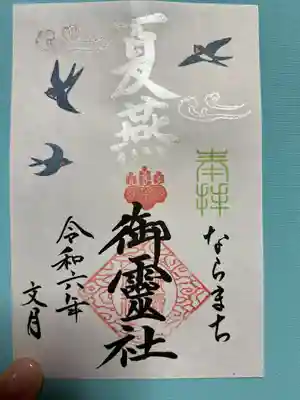 奉拝
ならまち
夏燕
御靈社
令和六年
文月